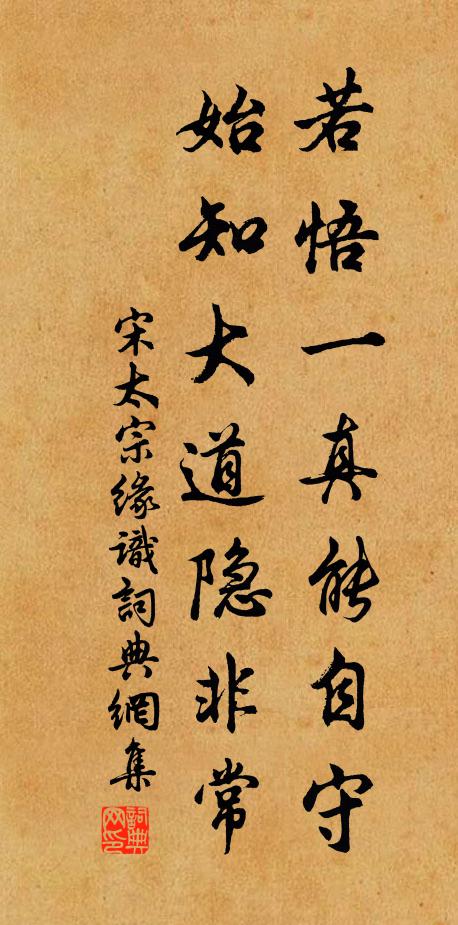 若悟一真能自守
始知大道隐非常
宋太宗缘識詞典網集
詞典网印